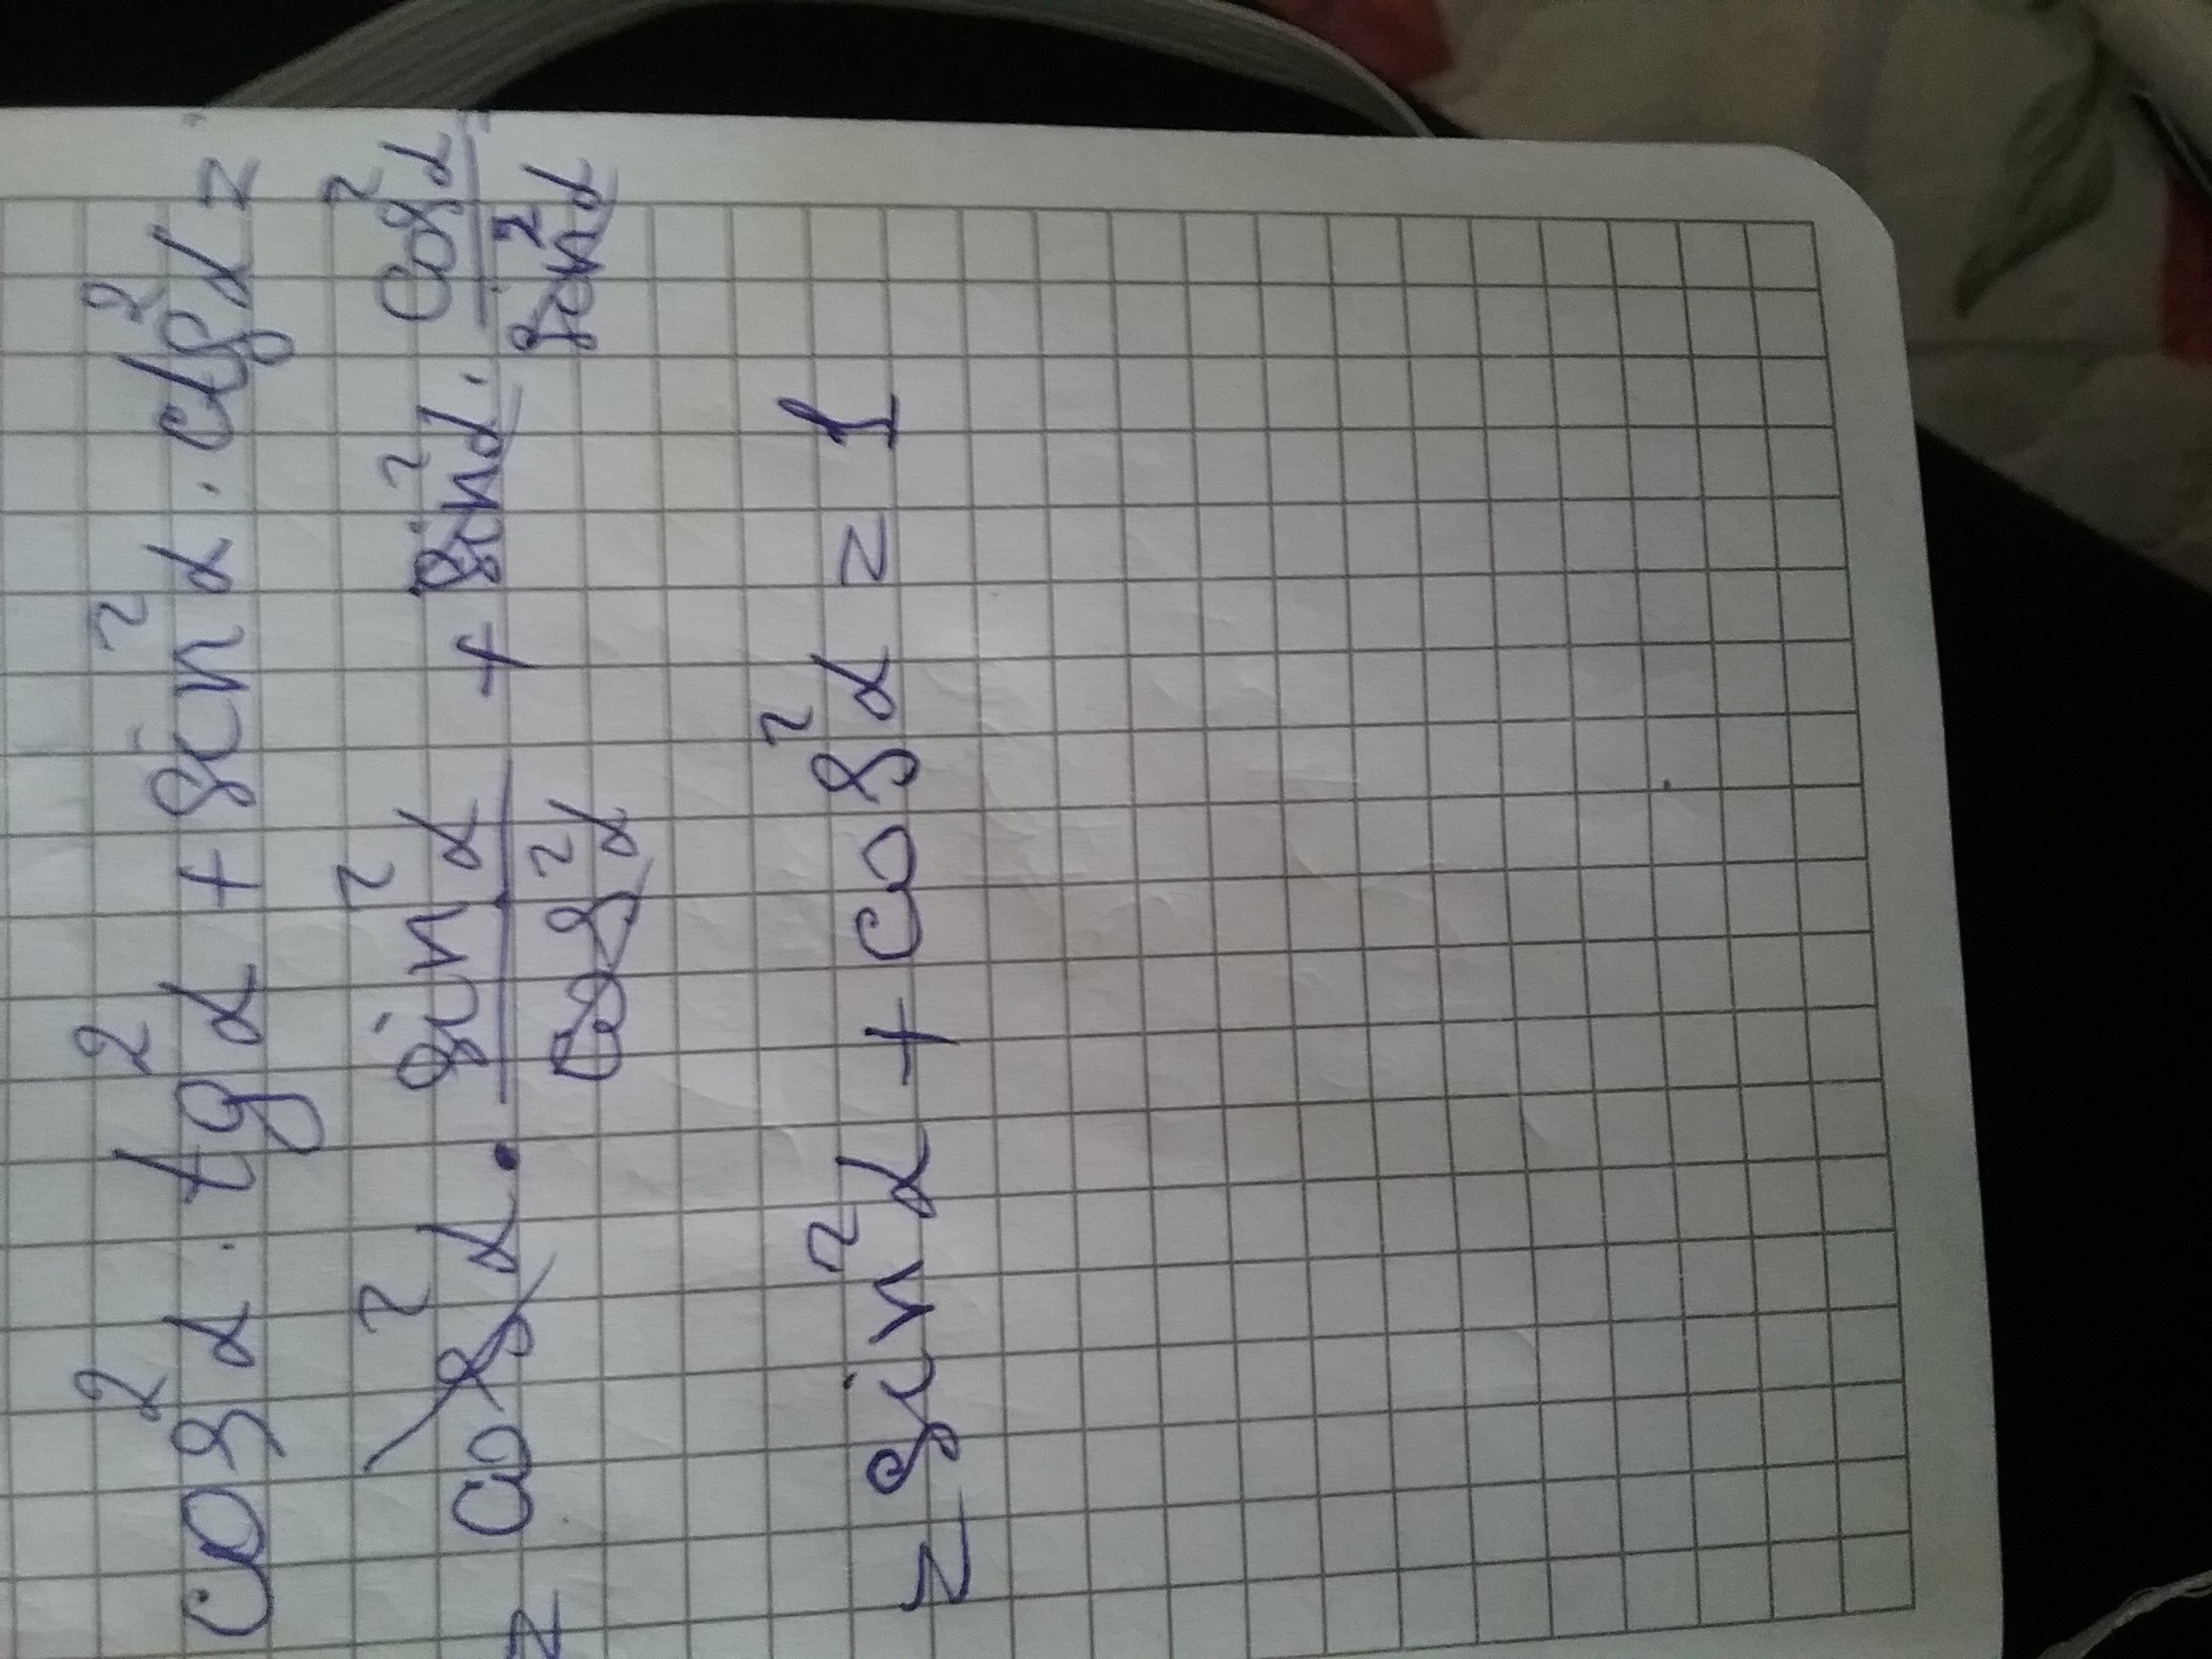 cos²α · tg²α + sin²α · ctg²α =
= cos²α · sin²α/cos²α + sin²α · cos²α/sin²α =
= sin²α + cos²α = 1